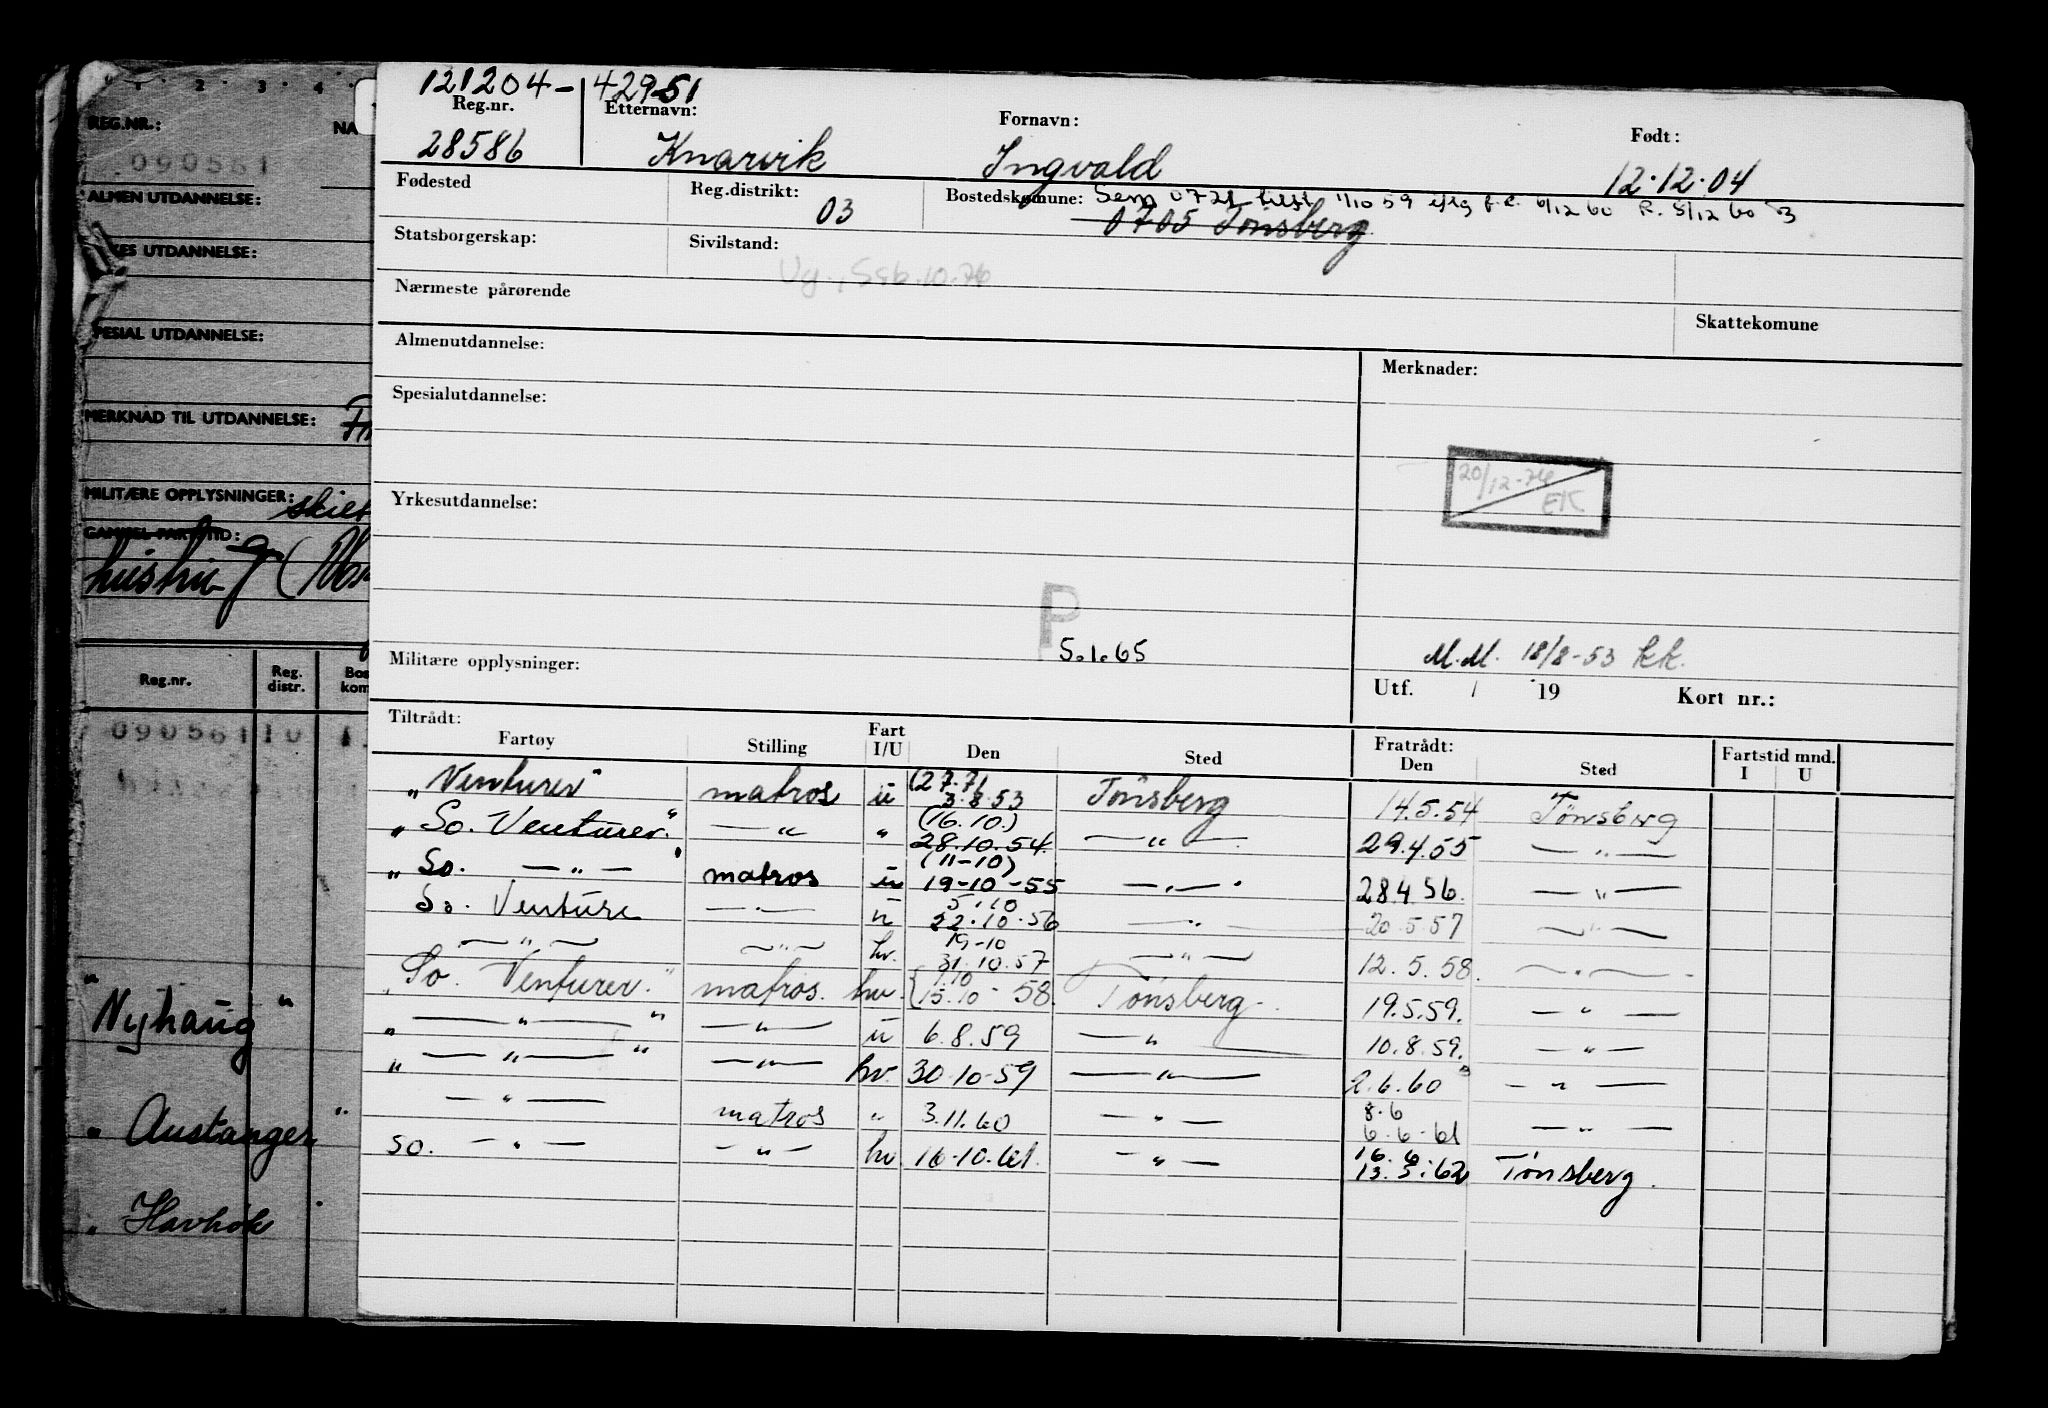 121204-42951
Reg.nr. Etternavn: Fornavn: Født:
28586 Knarvik Ingvald 12.12.04
Fødested Reg.distrikt: 03 Bostedskomune: Sem 0721 1/10 59 6/12 60 R. 5/12 60
0705 Tønsberg
Statsborgerskap: Sivilstand: Ug.,
Nærmeste pårørende Skattekomune
Almenutdannelse: Merknader:
Spesialutdannelse:
20/12-76 EK
Yrkesutdannelse:
P
5.1.65
Militære opplysninger: M.M. 18/8-53 kk.
Utf. / 19 Kort nr.:
Tiltrådt: Fratrådt: Fartstid mnd.
Fartøy Stilling Fart I/U Den Sted Den Sted I U
"Venturer" matros u (27.7) 3.8.53 Tønsberg 14.5.54 Tønsberg
"So. Venturer." — " — " (16.10.) 28.10.54. — " — 29.4.55 — " —
"So. — " — " matros u (11-10) 19-10-55 — " — 28.4 56. — " —
So. Venture — " — u 5.10 22.10.56 — " — 20.5.57 — " —
— " — — " — hv. 19-10 31.10.57 — " — 12.5.58. — " —
"So. Venturer." matros. hv. 1.10 15.10-58. Tønsberg. 19.5.59. — " —
" — " — " — " — u 6.8.59 — " — 10.8.59. — " —
" — " — " — " — hv. 30.10.59 — " — 2.6.60 — " —
— " — matros " 3.11.60 — " — 8.6 6.6.61 — " —
so. — " — — " — hv 16.10.61. — " — 16.6 13.5.62 Tønsberg.
1 2 3 4
REG.NR.: NA
090561
ALMEN UTDANNELSE:
ES UTDANNELSE:
PESIAL UTDANNELSE:
MERKNAD TIL UTDANNELSE:
MILITÆRE OPPLYSNINGER:
GAMMEL FARTSTID:
Reg.nr. Reg. distr. Bos kom
090561 10 1
"Nyhaug"
"Austanger"
"Havhok